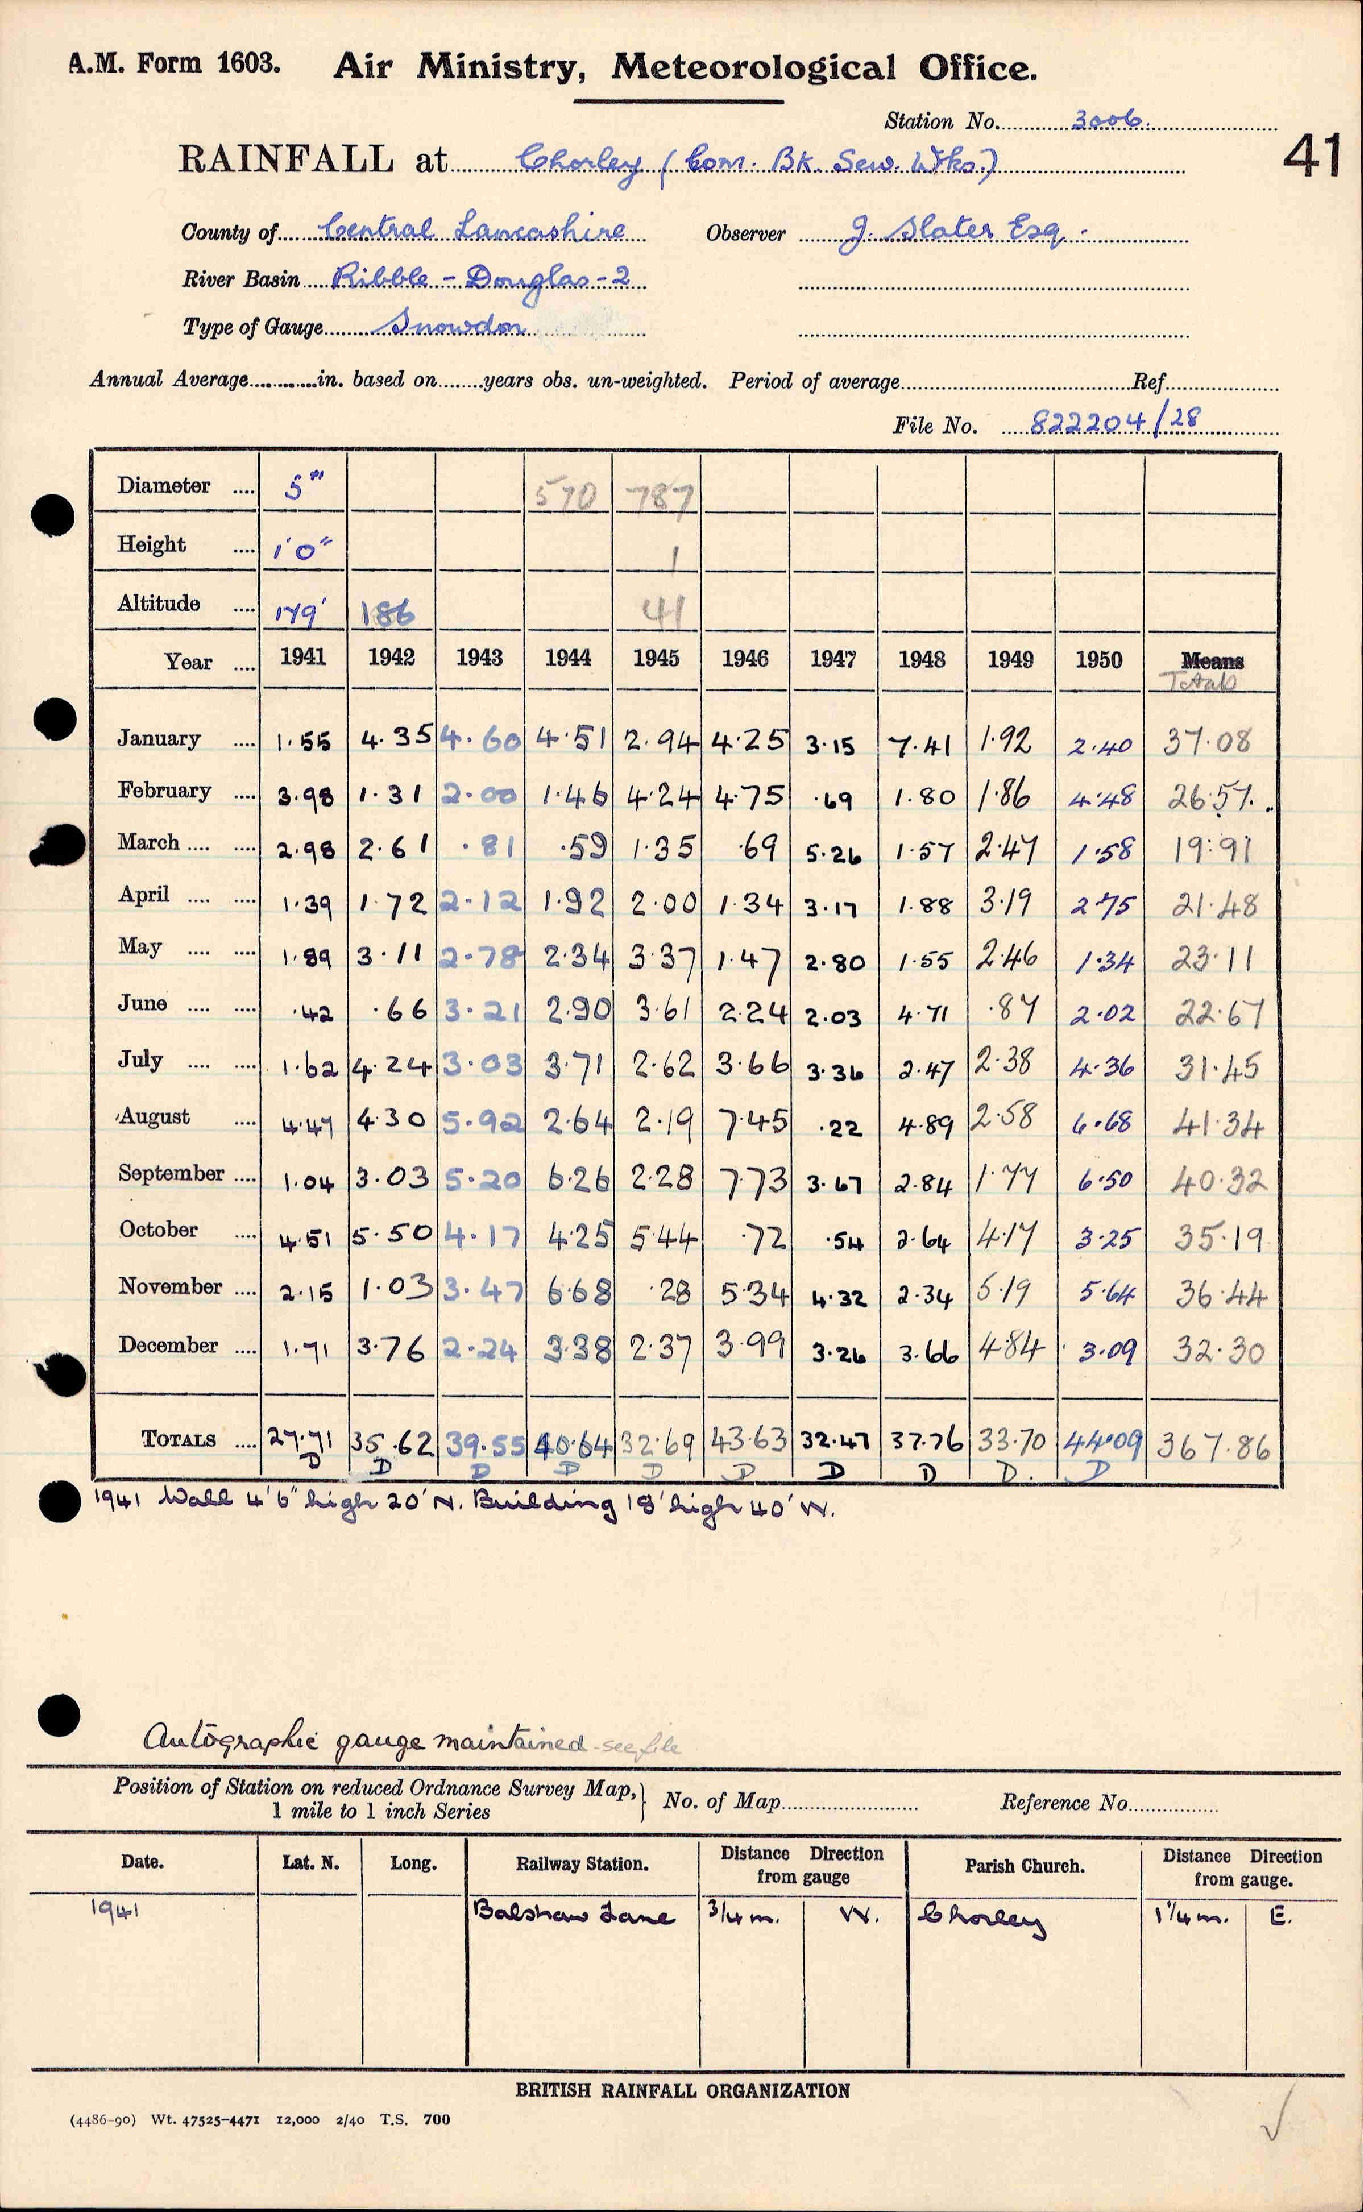 A.M. Form 1603. Air Ministry, Meteorological Office.
Station No. 3006.
41
RAINFALL at Chorley (Com. Bk. Sew. Wks.)
County of Central Lancashire Observer J. Slater Esq.
River Basin Ribble - Douglas - 2
Type of Gauge Snowdon
Annual Average in. based on years obs. un-weighted. Period of average Ref.
File No. 822204/28
Diameter 5" 570 787
Height 1'0" 1
Altitude 179' 186 41
Year 1941 1942 1943 1944 1945 1946 1947 1948 1949 1950 Means
Totals
January 1.55 4.35 4.60 4.51 2.94 4.25 3.15 7.41 1.92 2.40 37.08
February 3.98 1.31 2.00 1.46 4.24 4.75 .69 1.80 1.86 4.48 26.57
March 2.98 2.61 .81 .59 1.35 .69 5.26 1.57 2.47 1.58 19.91
April 1.39 1.72 2.12 1.92 2.00 1.34 3.17 1.88 3.19 2.75 21.48
May 1.89 3.11 2.78 2.34 3.37 1.47 2.80 1.55 2.46 1.34 23.11
June .42 .66 3.21 2.90 3.61 2.24 2.03 4.71 .87 2.02 22.67
July 1.62 4.24 3.03 3.71 2.62 3.66 3.36 2.47 2.38 4.36 31.45
August 4.47 4.30 5.92 2.64 2.19 7.45 .22 4.89 2.58 6.68 41.34
September 1.04 3.03 5.20 6.26 2.28 7.73 3.67 2.84 1.77 6.50 40.32
October 4.51 5.50 4.17 4.25 5.44 .72 .54 2.64 4.17 3.25 35.19
November 2.15 1.03 3.47 6.68 .28 5.34 4.32 2.34 5.19 5.64 36.44
December 1.71 3.76 2.24 3.38 2.37 3.99 3.26 3.66 4.84 3.09 32.30
TOTALS 27.71 35.62 39.55 40.64 32.69 43.63 32.47 37.76 33.70 44.09 367.86
D D D D D D D D D. D
1941 Wall 4'6" high 20' N. Building 18' high 40' W.
Autographic gauge maintained - see file
Position of Station on reduced Ordnance Survey Map, 1 mile to 1 inch Series } No. of Map Reference No.
Date. Lat. N. Long. Railway Station. Distance Direction from gauge Parish Church. Distance Direction from gauge.
1941 Balshaw Lane 3/4 m. W. Chorley 1 1/4 m. E.
BRITISH RAINFALL ORGANIZATION
(4486-90) Wt. 47525-4471 12,000 2/40 T.S. 700